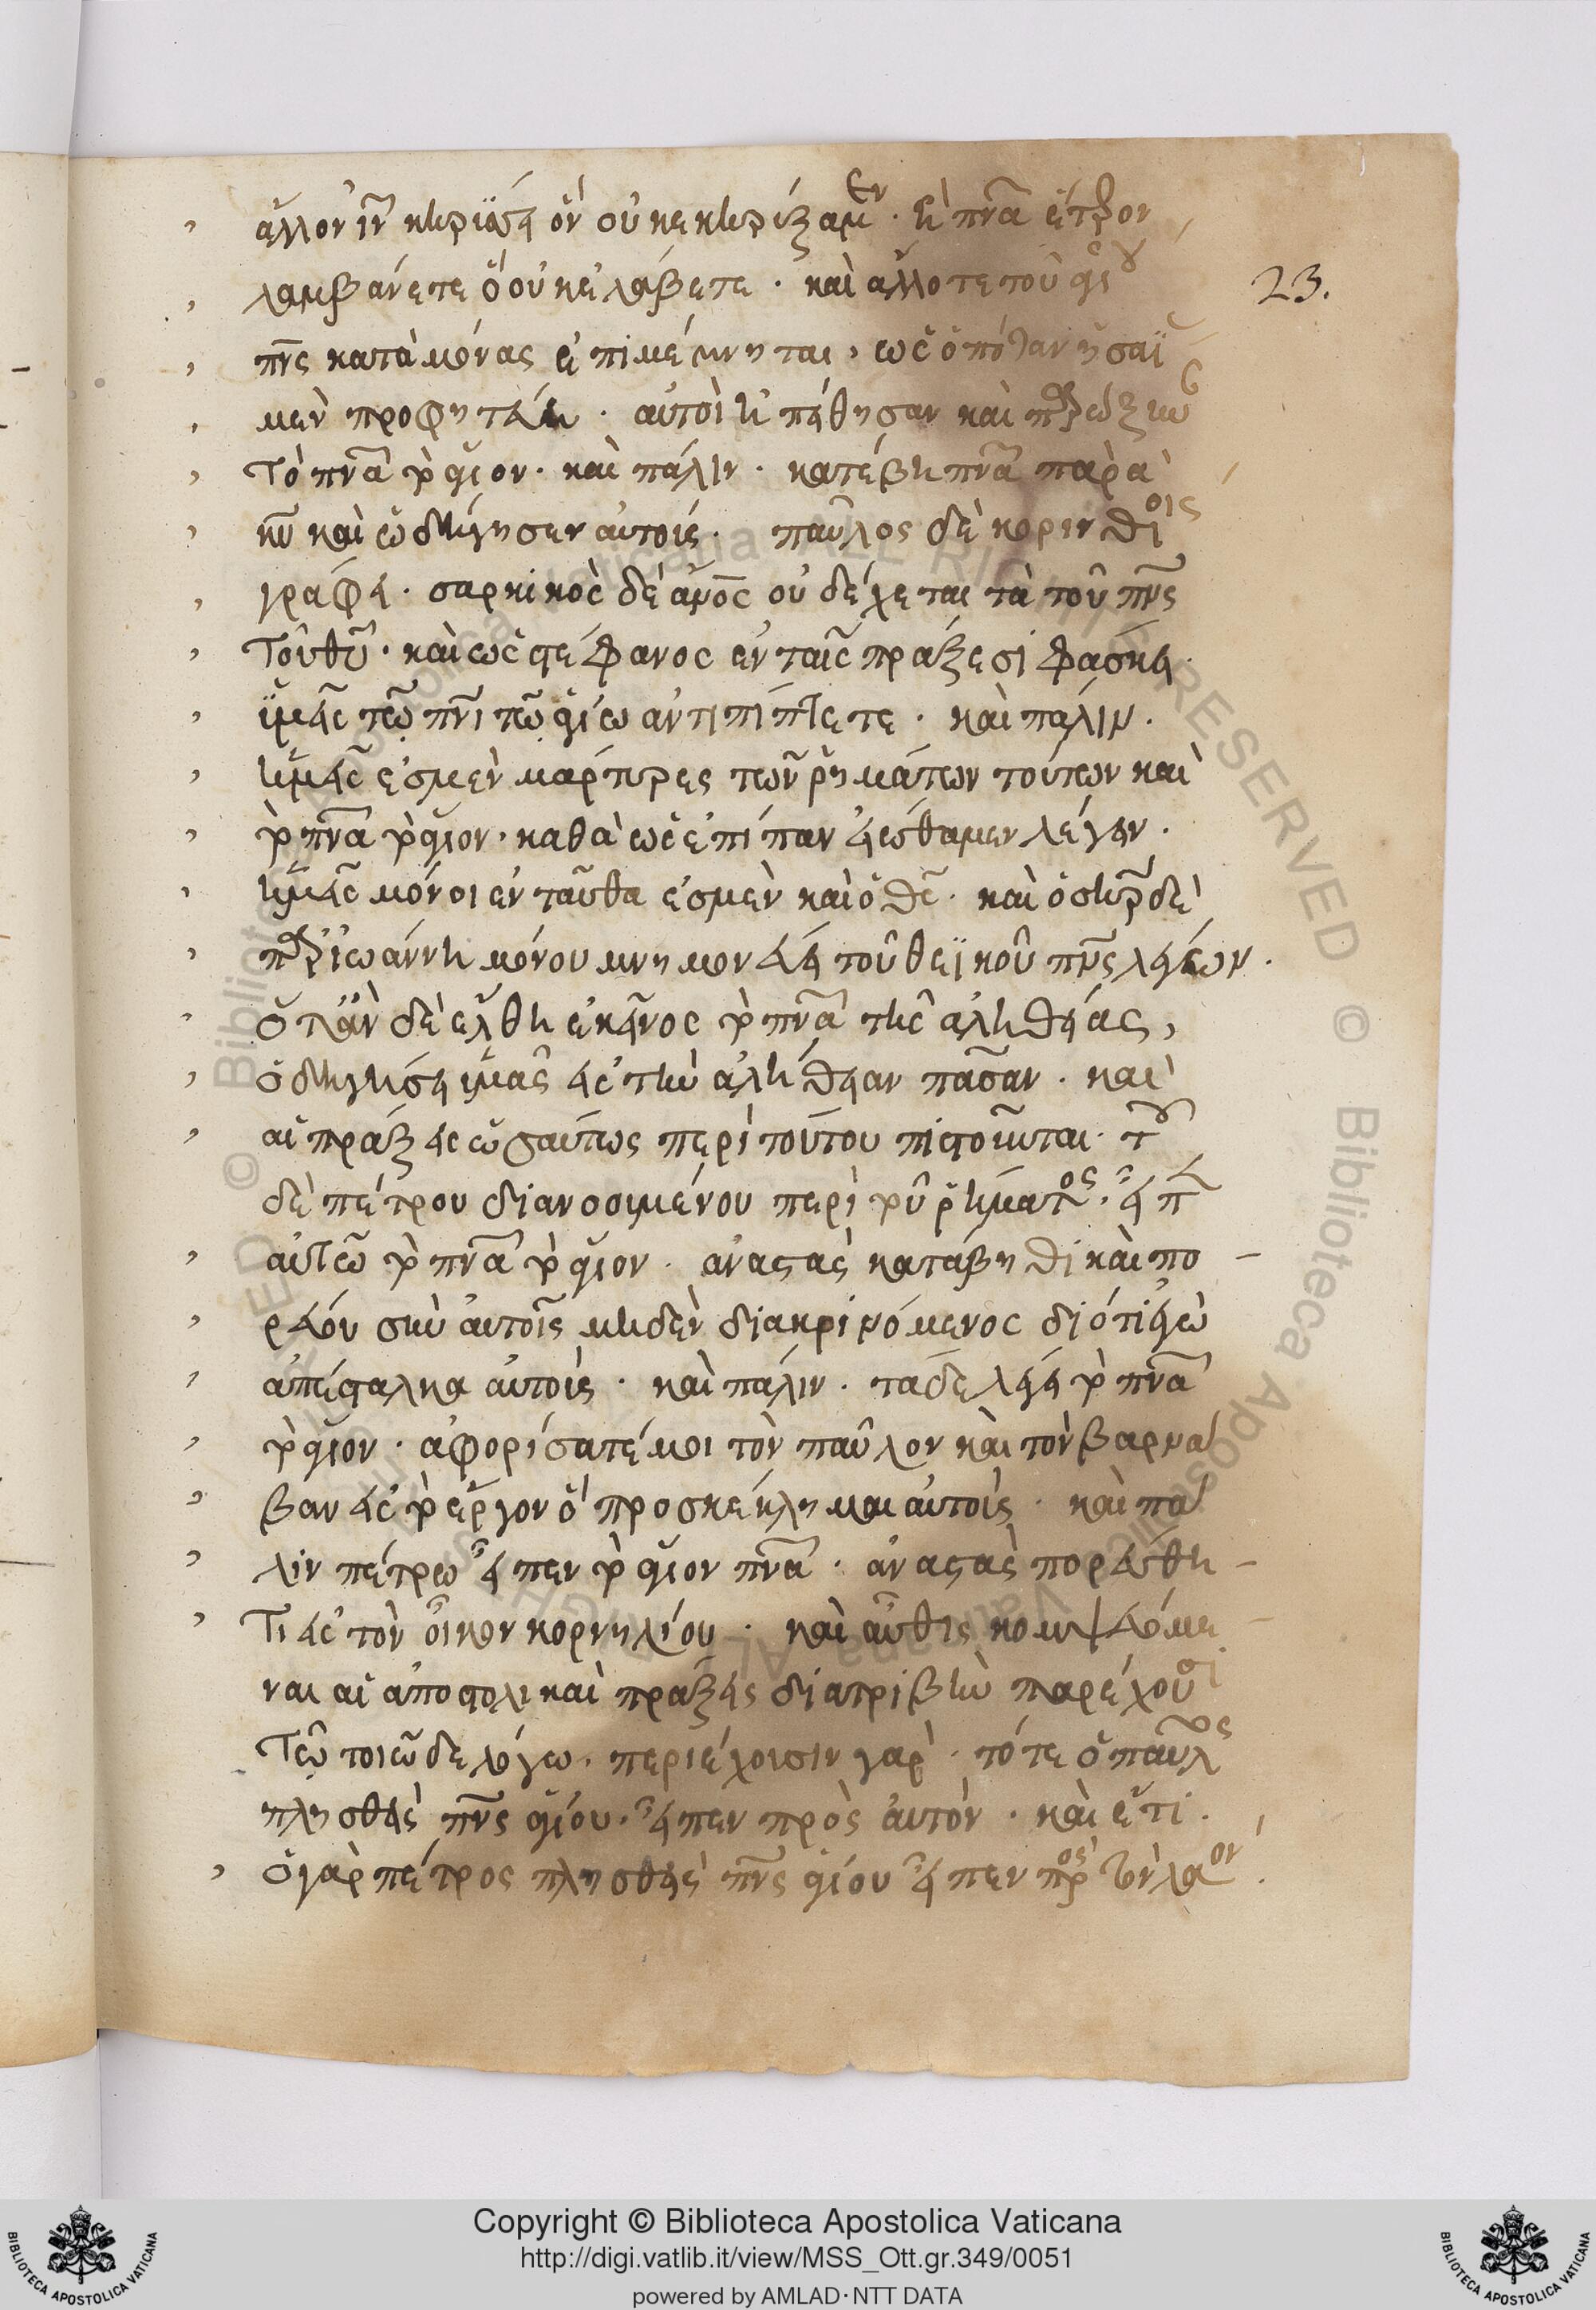 ἄλλον ἰν κηρύσσει ὃν οὐκ ἐκηρύξαμεν · ἢ πνα ἕτερον
λαμβάνετε ὃ οὐκ ἐλάβετε · καὶ ἄλλοτε τοῦ ἁγίου
23.
πνς κατὰ μόνας ἐπιμέμνηται, ὡς ὁπόταν ἡσαΐ
μὲν προφητεύει · αὐτοὶ ἠπείθησαν καὶ
τὸ πνα τὸ ἅγιον · καὶ πάλιν · κατέβη πνα παρὰ
κυ καὶ ὡδήγησεν αὐτούς · παῦλος δὲ κορινθίοις
γράφει · σαρκικὸς δὲ ἀνος οὐ δέχεται τὰ τοῦ πνς
τοῦ θυ · καὶ ὡς στέφανος ἐν ταῖς πράξεσι φάσκει ·
ὑμεῖς τῶ πνι τῶ ἁγίω ἀντιπίπτετε · καὶ πάλιν ·
ἡμεῖς ἐσμὲν μάρτυρες τῶν ῥημάτων τούτων καὶ
τὸ πνα τὸ ἅγιον · καθὰ ὡς ἐπίπαν εἰώθαμεν λέγειν ·
ἡμεῖς μόνοι ἐνταῦθα ἐσμὲν καὶ ὁ θς · καὶ ὁ σηρ δὲ
παρ ἰωάννη μόνου μνημονεύει τοῦ θεϊκοῦ πνς λέγων ·
ὅταν δὲ ἔλθη ἐκεῖνος τὸ πνα τῆς ἀληθείας,
ὁδηγήσει ὑμᾶς εἰς τὴν ἀλήθειαν πᾶσαν · καὶ
αἱ πράξεις ὡσαύτως περὶ τούτου πιστοῦνται · τοῦ
δὲ πέτρου διανοουμένου περὶ τοῦ ῥήματος · εἶπε
αὐτῶ τὸ πνα τὸ ἅγιον · ἀναστὰς κατάβηθι καὶ πο-
ρεύου σὺν αὐτοῖς μηδὲν διακρινόμενος διότι ἐγὼ
ἀπέσταλκα αὐτούς · καὶ πάλιν · τάδε λέγει τὸ πνα
τὸ ἅγιον · ἀφορίσατέ μοι τὸν παῦλον καὶ τὸν βαρνα
βαν εἰς τὸ ἔργον ὃ προσκέκλημαι αὐτούς · καὶ πά
λιν πέτρω εἶπεν τὸ ἅγιον πνα · ἀναστὰς πορεύθη-
τι εἰς τὸν οἶκον κορνηλίου · καὶ αὖθις κομψευόμε-
ναι αἱ ἀποστολικαὶ πράξεις διατριβὴν παρέχουσι
τῶ τοιῶδε λόγω · περιέχουσιν γὰρ · τότε ὁ παῦλος
πλησθεὶς πνς ἁγίου · εἶπεν πρὸς αὐτόν · καὶ ἔτι ·
ὁ γὰρ πέτρος πλησθεὶς πνς ἁγίου εἶπεν πρὸς τὸν λαόν ·
Copyright © Biblioteca Apostolica Vaticana
http://digi.vatlib.it/view/MSS_Ott.gr.349/0051
powered by AMLAD·NTT DATA
BIBLIOTECA APOSTOLICA VATICANA
BIBLIOTECA APOSTOLICA VATICANA